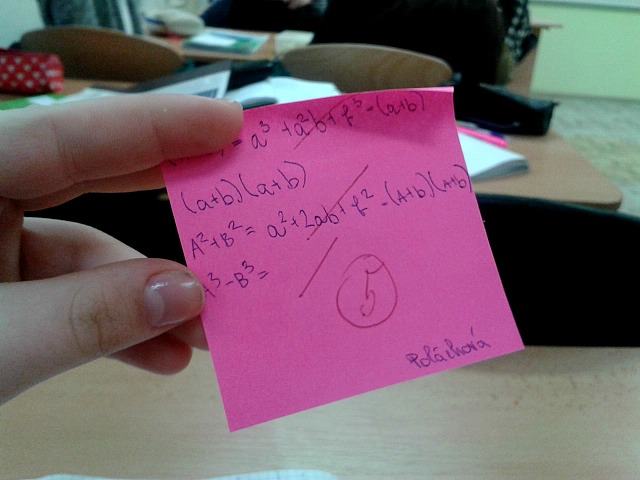 = a³ + a²b + b³ - (a+b)
(a+b)(a+b)
A²+B² = a²+2ab+b² - (A+b)(A+b)
A³-B³ =
5
Poláchová